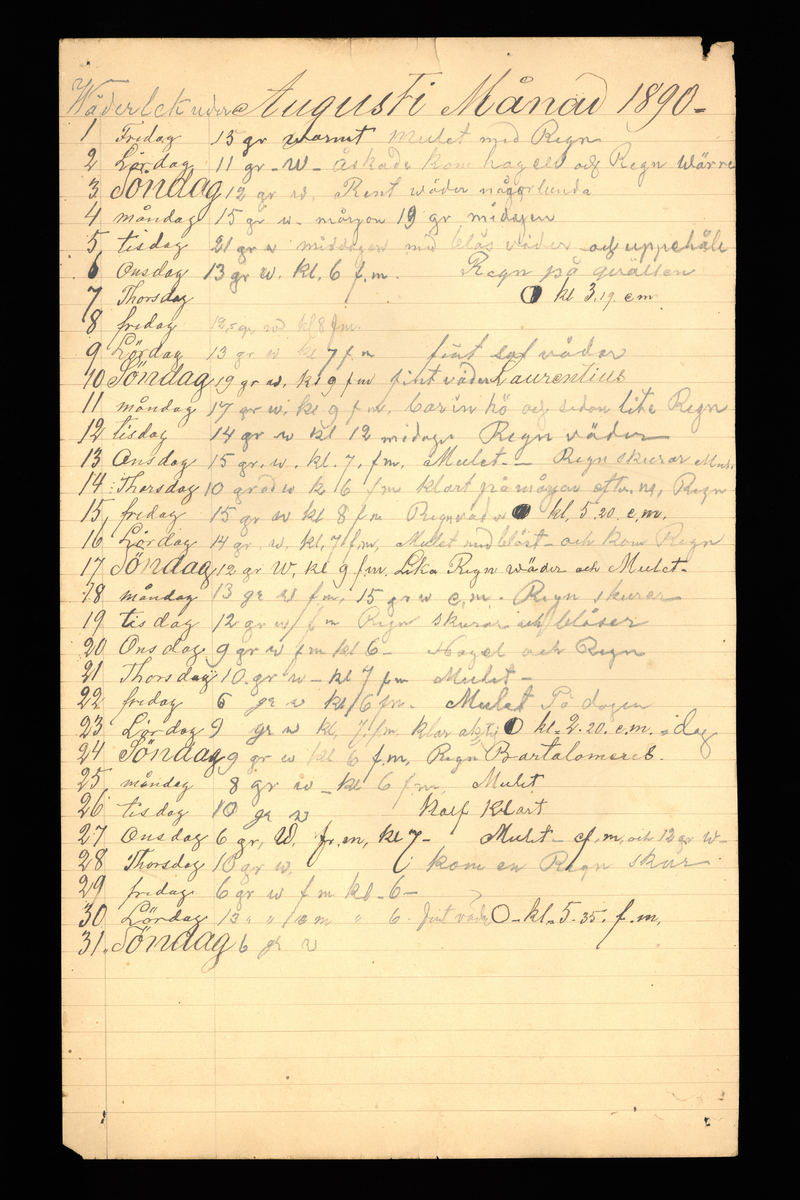 Wäderlek under Augusti Månad 1890-
1 Fredag 15 gr warmt mulet med Regn
2 Lördag 11 gr - W - åskade kom hagel och Regn Wärre
3 Söndag 12 gr w. Rent wäder någorlunda
4 måndag 15 gr w. morgon 19 gr midagen
5 tisdag 21 gr w middagen med blås väder och uppehåll
6 Onsdag 13 gr W. kl. 6 f.m. Regn på qwällen
7 Thorsdag kl 3.19. e m
8 fredag 12 gr w kl 8 fm.
9 Lördag 13 gr w kl 7 f m fint väder
10 Söndag 19 gr w. kl 9 f m fint väder Laurentius
11 måndag 17 gr w. kl 9 f m. hö och sedan lite Regn
12 tisdag 14 gr w kl 12 midag Regn väder
13 Onsdag 15 gr. w. kl. 7. f.m. Mulet - Regn skurar
14 Thorsdag 10 grad w kl 6 f m klart på morgon Regn
15, fredag 15 gr w kl 8 f m Regnväder kl, 5.20. e.m.
16 Lördag 14 gr w. kl, 7 f.m, Mulet med blåst - och kom Regn
17 Söndag 12 gr W, kl 9 f.m. Lika Regn wäder och Mulet-
18 måndag 13 gr w f m, 15 gr w e.m. Regn skurar
19 tisdag 12 gr w f m Regn skurar och blåser
20 Onsdag 9 gr w f m kl 6- Hagel och Regn
21 Thorsdag 10. gr w - kl 7 f m Mulet -
22 fredag 6 gr w kl 6 f m. Mulet På dagen
23 Lördag 9 gr w kl. 7. f.m. klar kl. 2. 20. e.m. idag
24 Söndag 9 gr w kl 6 f.m, Regn Bartalomeus.
25 måndag 8 gr w - kl 6 f m. Mulet
26 tisdag 10 gr w half klart
27 Onsdag 6 gr, W. fr.m, kl 7- Mulet - ef.m, och 12 gr w-
28 Thorsdag 10 gr w, kom en Regn skur
29 fredag 6 gr w f m kl - 6-
30 Lördag 13 " " " e m " 6. fint väder kl. 5. 35. f.m,
31. Söndag 6 gr w